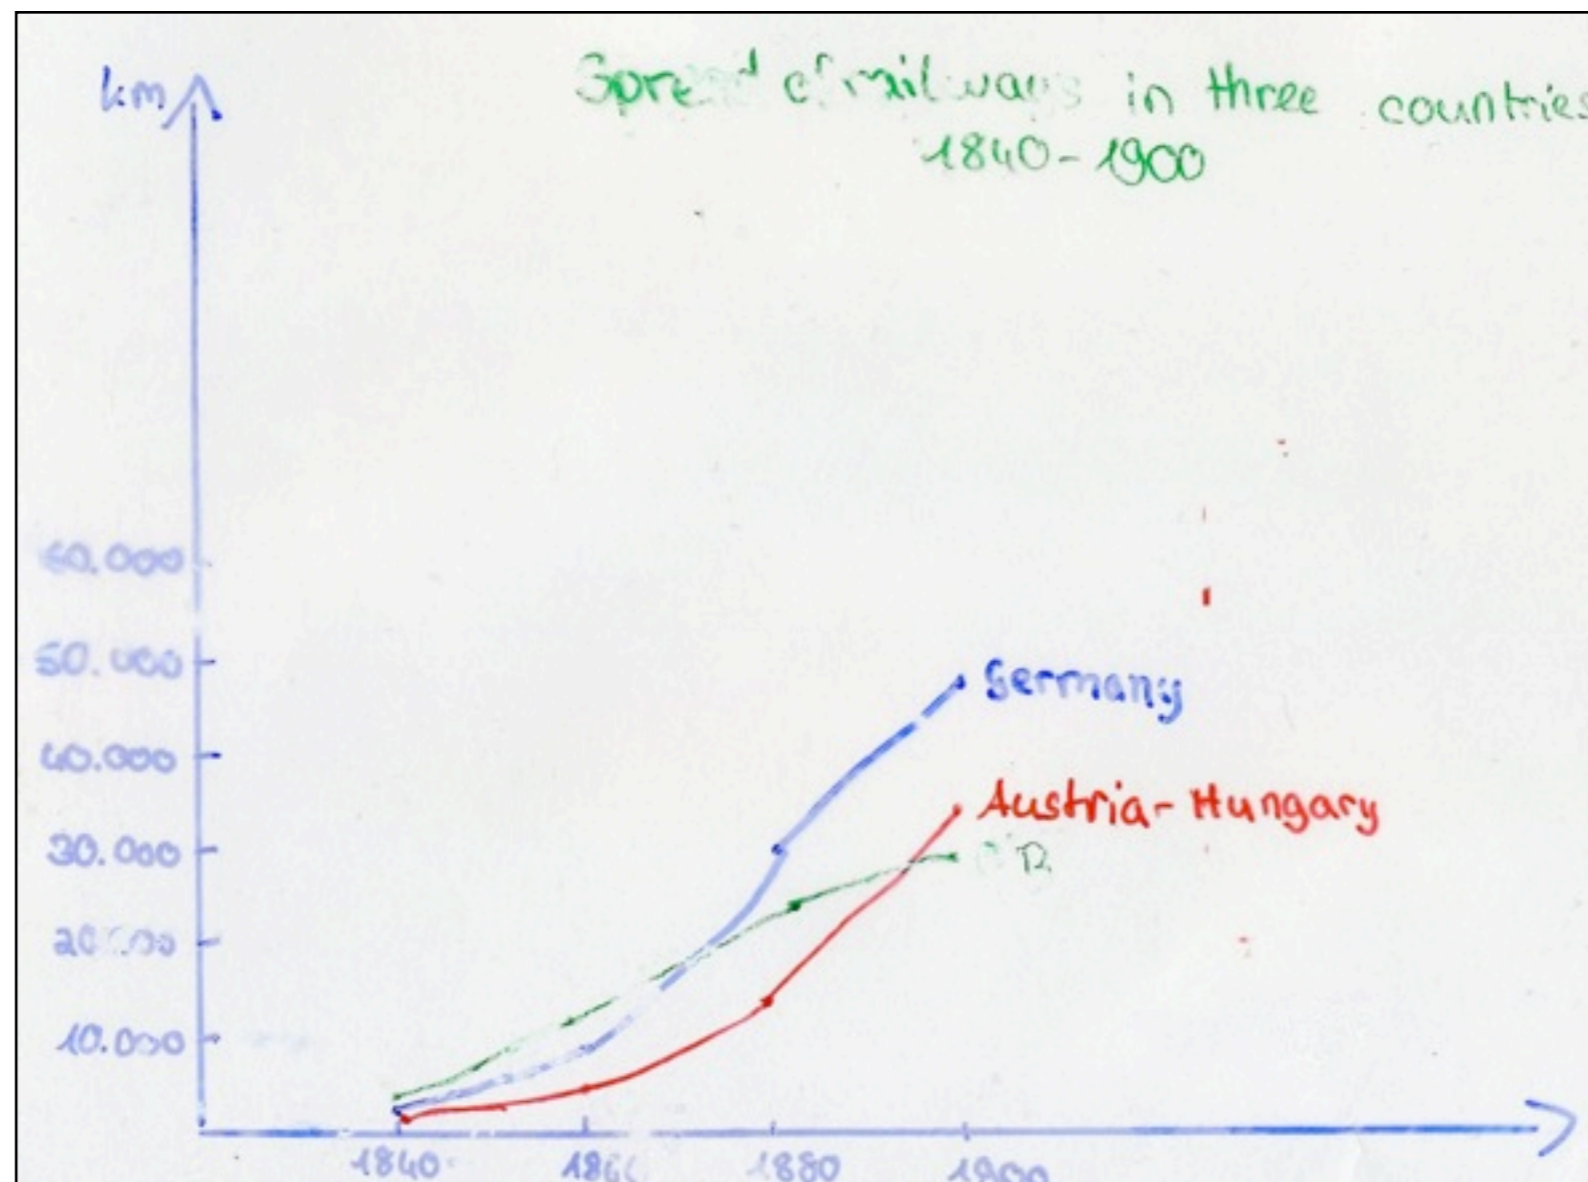 km
Spread of railways in three countries
1840-1900
60.000
50.000
40.000
30.000
20.000
10.000
Germany
Austria-Hungary
1840
1880
1900